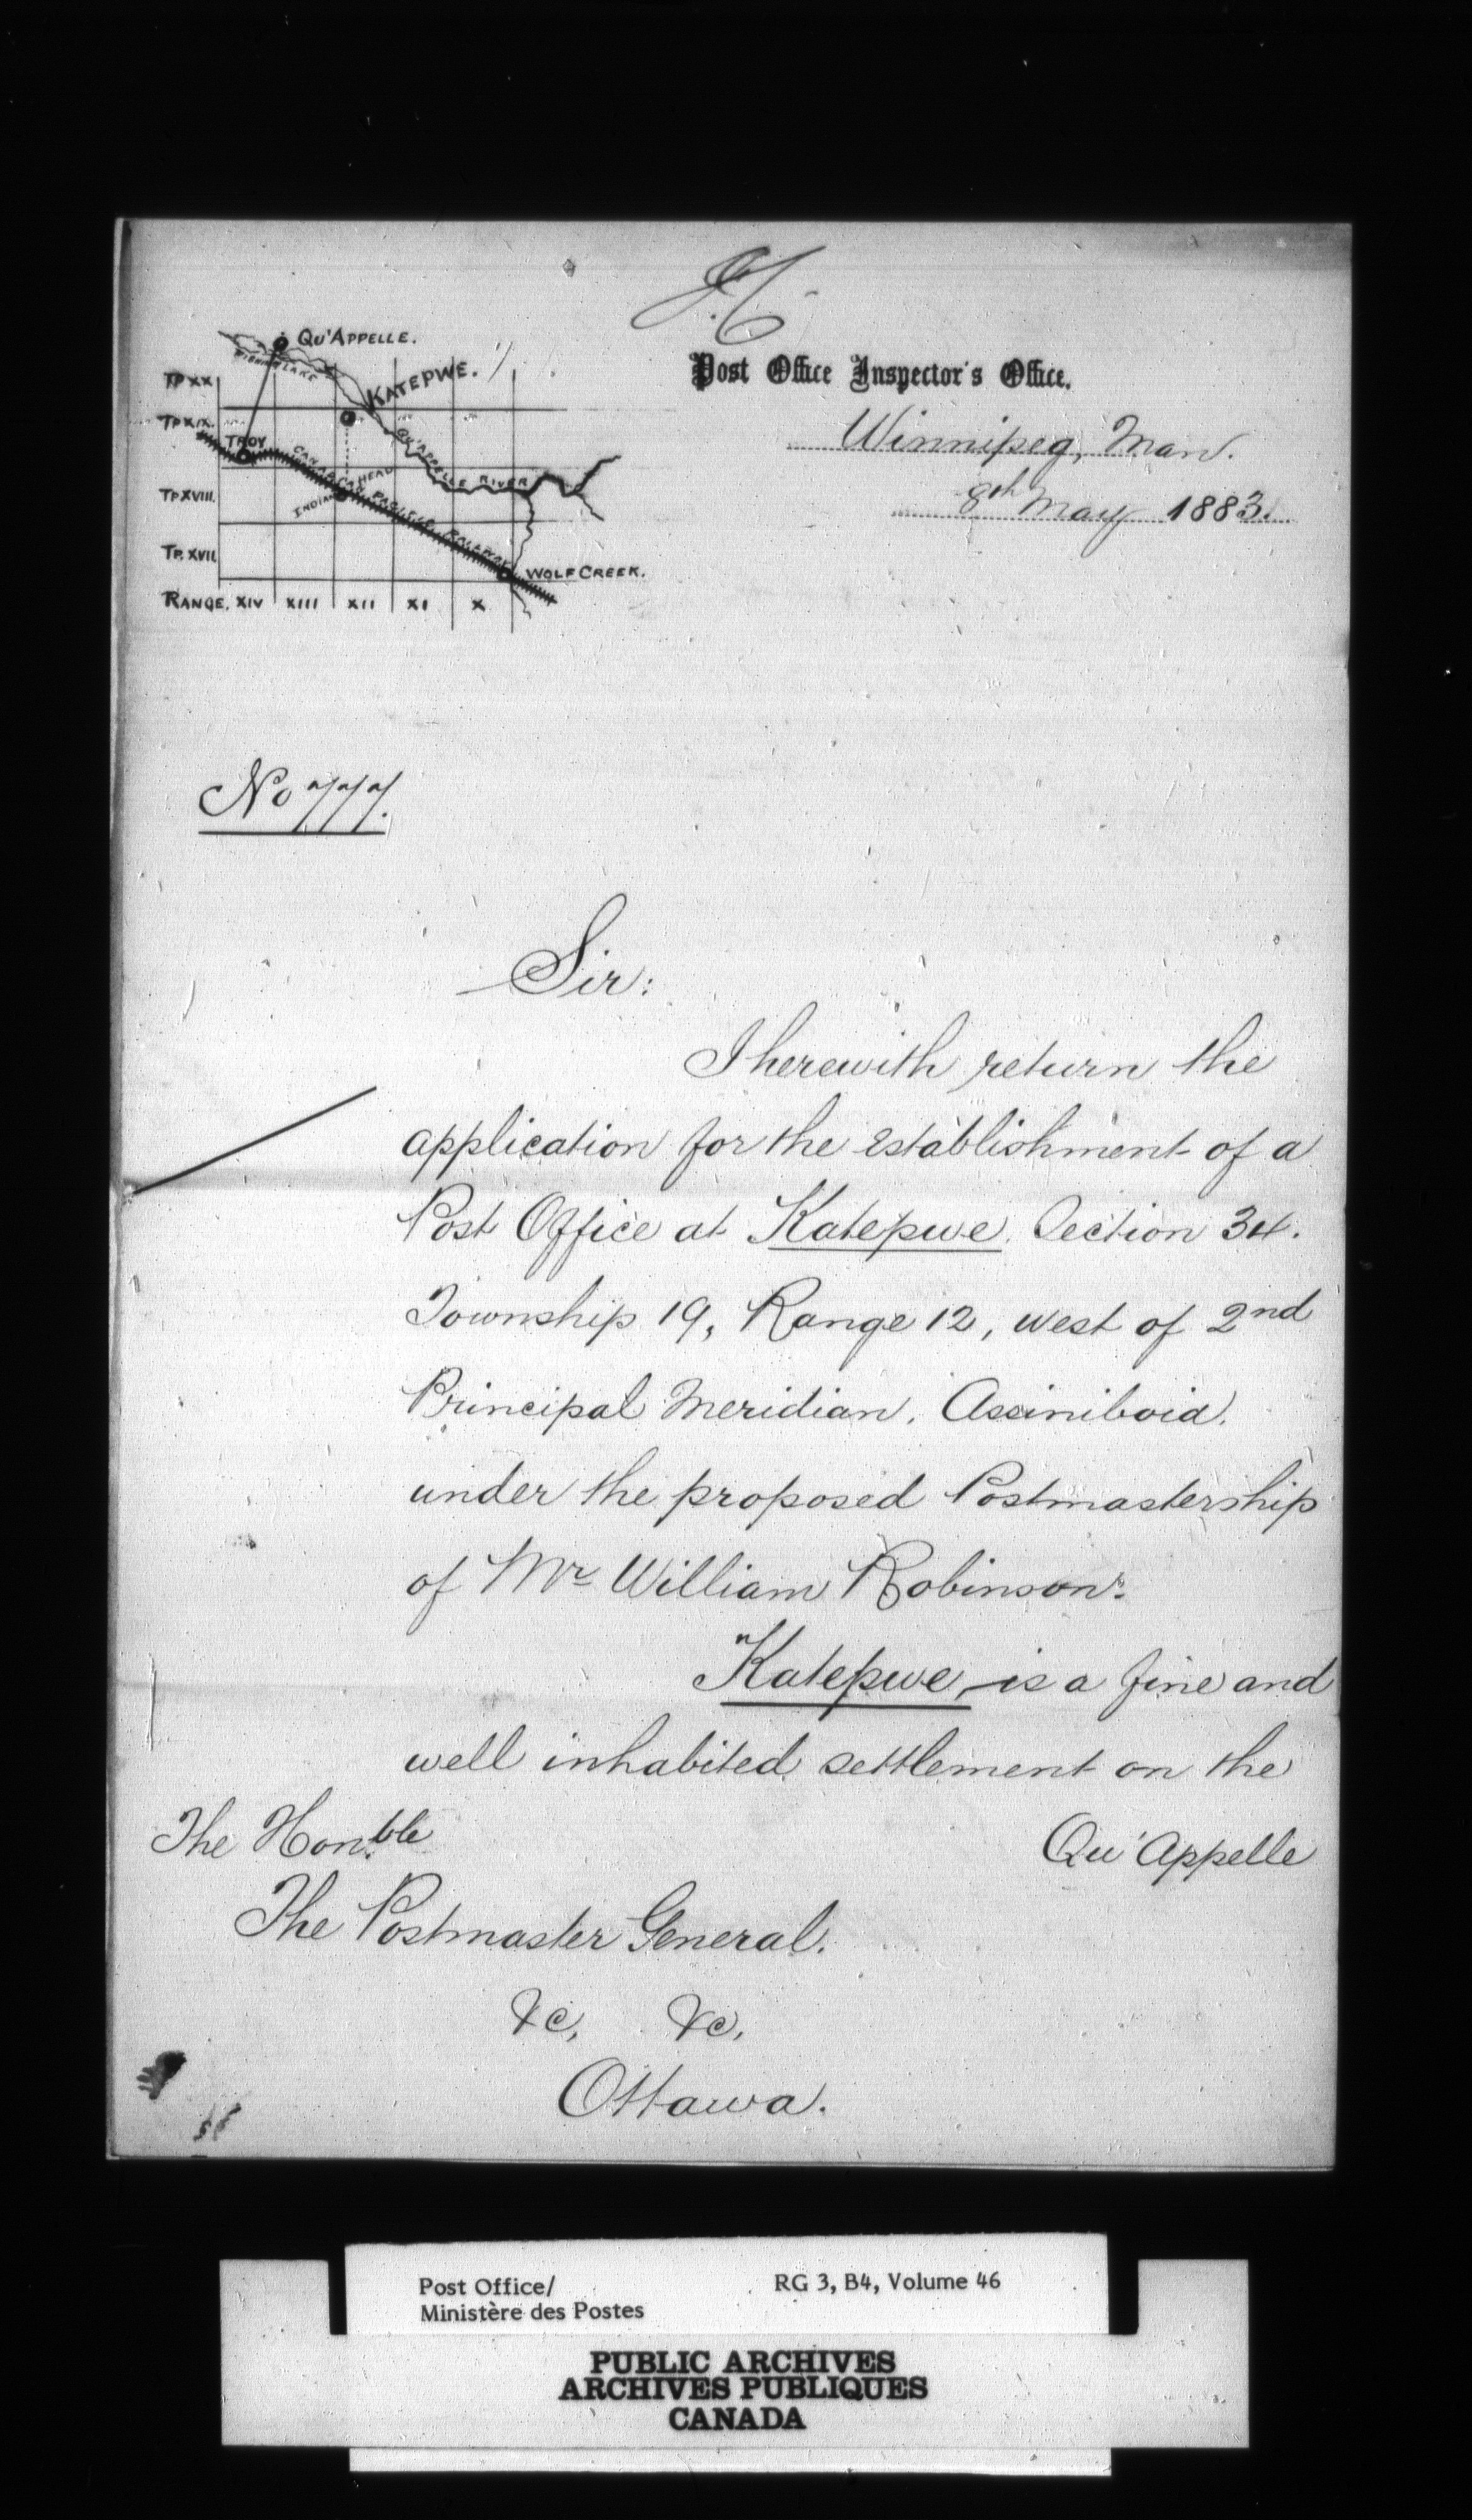 Qu'Appelle.
Fishing Lake
Katepwe.
Tp XX
Tp XIX.
Troy
Canadian Pacific Railway
Qu'Appelle River
Indian Head
Tp XVIII.
Tp. XVII
Wolf Creek.
Range. XIV XIII XII XI X
Post Office Inspector's Office.
Winnipeg, Man.
8th May 1883.
No 777.
Sir:
I herewith return the
application for the establishment of a
Post Office at Katepwe. Section 34.
Township 19, Range 12, west of 2nd
Principal Meridian. Assiniboia.
under the proposed Postmastership
of Mr William Robinson.
Katepwe, is a fine and
well inhabited settlement on the
Qu'Appelle
The Honble
The Postmaster General.
&c, &c,
Ottawa.
Post Office/ RG 3, B4, Volume 46
Ministère des Postes
PUBLIC ARCHIVES
ARCHIVES PUBLIQUES
CANADA